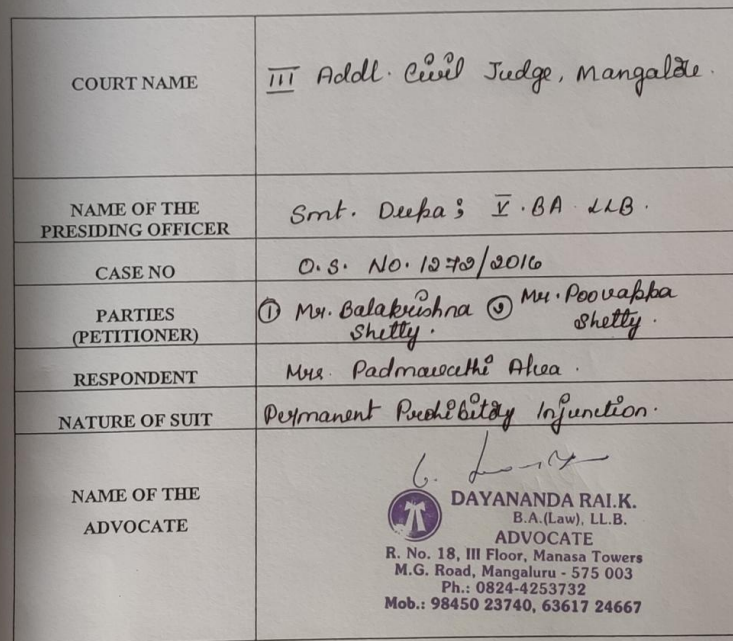 COURT NAME
III Addl. Civil Judge, Mangalore.
NAME OF THE
PRESIDING OFFICER
Smt. Deepa; V. BA LLB.
CASE NO
O.S. NO. 1272/2016
PARTIES
(PETITIONER)
① Mr. Balakrishna ② Mr. Poovappa
Shetty. Shetty.
RESPONDENT
Mrs. Padmavathi
NATURE OF SUIT
Permanent Prohibitory Injunction.
NAME OF THE
ADVOCATE
DAYANANDA RAI.K.
B.A.(Law), LL.B.
ADVOCATE
R. No. 18, III Floor, Manasa Towers
M.G. Road, Mangaluru - 575 003
Ph.: 0824-4253732
Mob.: 98450 23740, 63617 24667